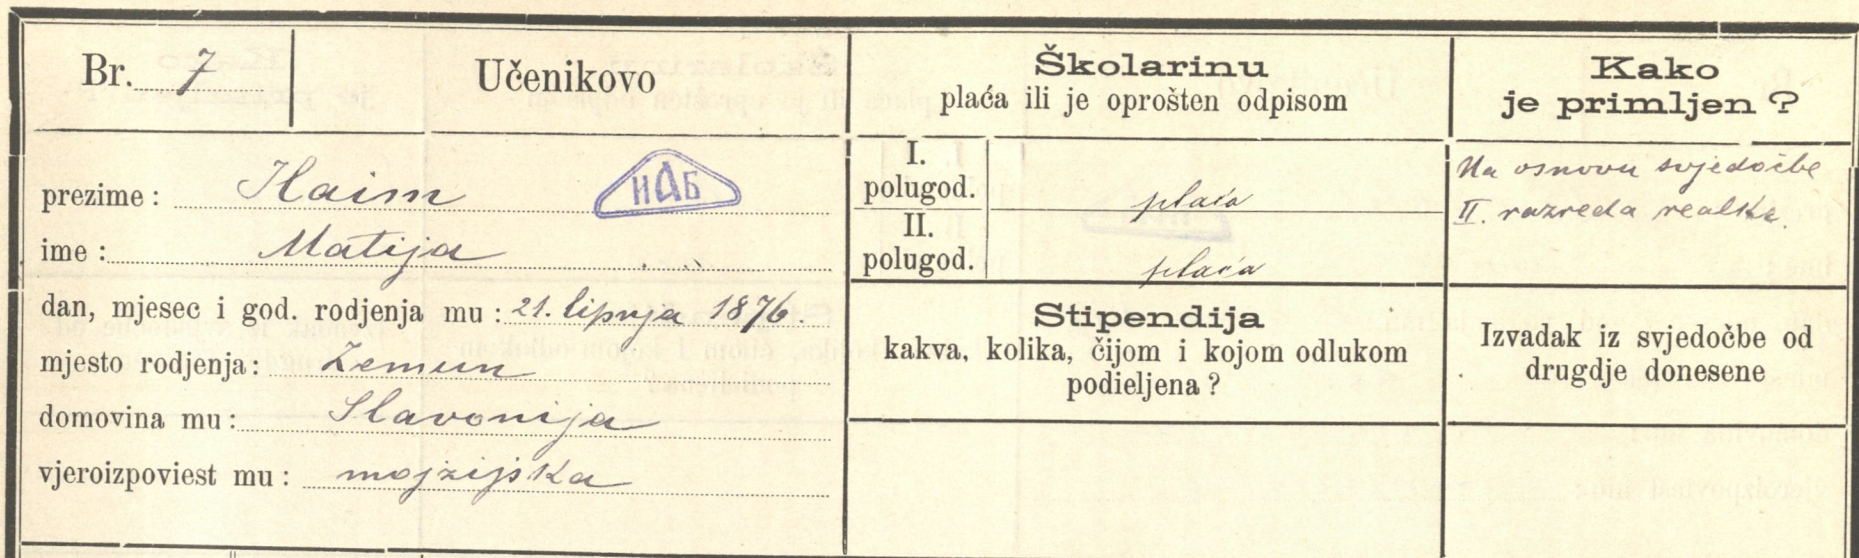 Br. 7
Učenikovo
prezime: Haim
ИАБ
ime: Matija
dan, mjesec i god. rodjenja mu: 21. lipnja 1876.
mjesto rodjenja: Zemun
domovina mu: Slavonija
vjeroizpoviest mu: mojzijska
Školarinu
plaća ili je oprošten odpisom
I.
polugod. plaća
II.
polugod. plaća
Stipendija
kakva, kolika, čijom i kojom odlukom
podieljena?
Kako
je primljen?
Na osnovu svjedočbe
II. razreda realke.
Izvadak iz svjedočbe od
drugdje donesene